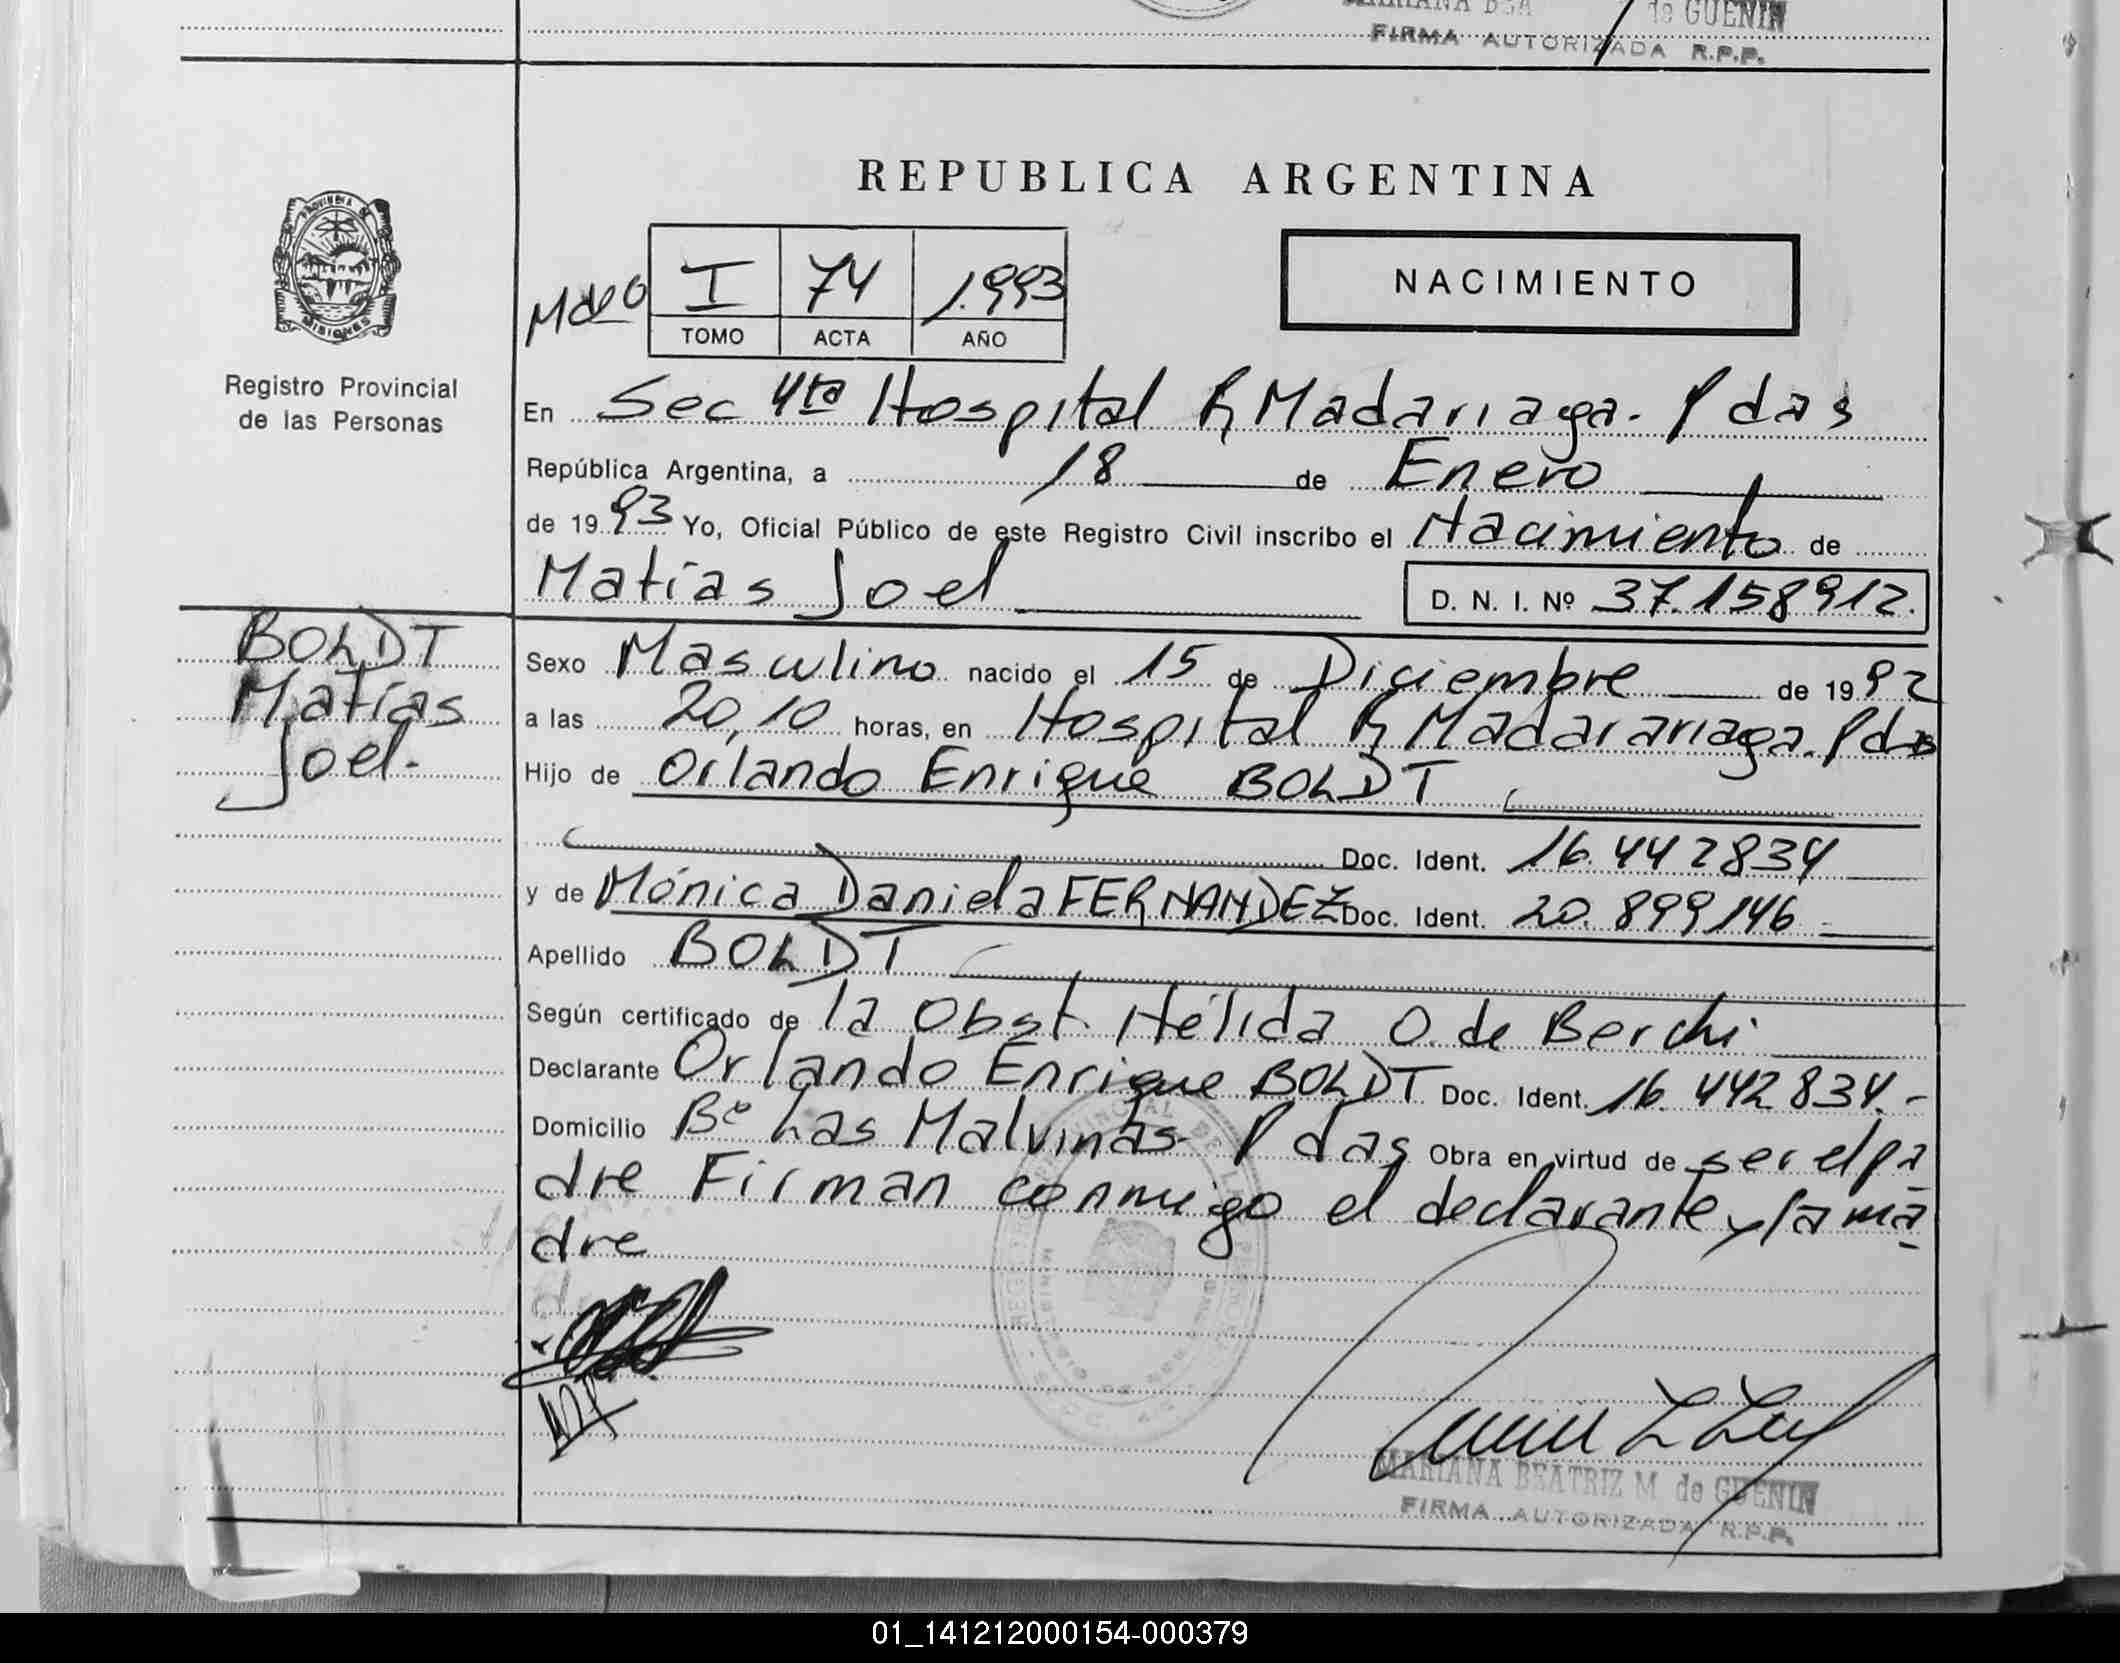 de GUENIN
FIRMA AUTORIZADA R.P.P.
REPUBLICA ARGENTINA
PROVINCIA DE
MISIONES
I 74 1.993
TOMO ACTA AÑO
NACIMIENTO
Registro Provincial
de las Personas
En Sec 4ta Hospital R, Madariaga. Pdas
República Argentina, a 18 de Enero
de 1993 Yo, Oficial Público de este Registro Civil inscribo el Nacimiento de
Matías Joel D. N. I. Nº 37.158912.
BOLDT
Matías
Joel.
Sexo Masculino nacido el 15 de Diciembre de 1992
a las 20,10 horas, en Hospital R, Madarariaga. Pdas
Hijo de Orlando Enrique BOLDT
Doc. Ident. 16.442834
y de Mónica Daniela FERNANDEZ Doc. Ident. 20.899146
Apellido BOLDT
Según certificado de la Obst. Hélida O. de Berchi
Declarante Orlando Enrique BOLDT Doc. Ident. 16.442834.-
Domicilio Bº Las Malvinas Pdas Obra en virtud de ser el pa
dre Firman conmigo el declarante y la ma
dre
MARIANA BEATRIZ M. de GUENIN
FIRMA AUTORIZADA R.P.P.
01_141212000154-000379